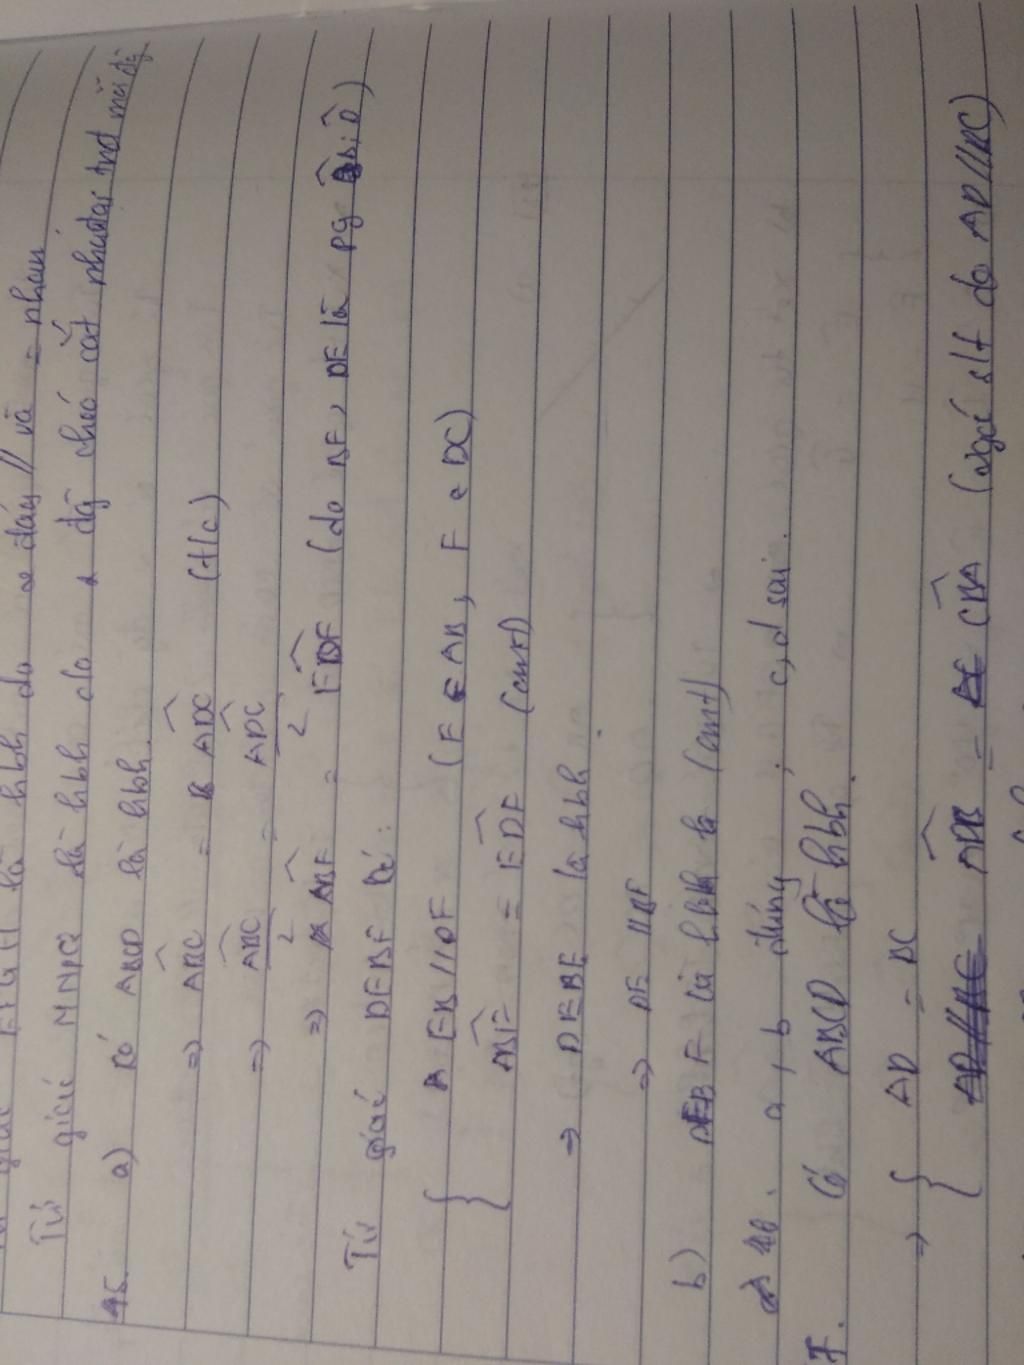 giác EFGH là hbh do 2 đáy // và = nhau
Tứ giác MNPQ là hbh do 2 đg chéo cắt nhau tại trđ mỗi đg
45. a) Có ABCD là hbh.
=> ABC = ADC (t/c)
=> ABC/2 = ADC/2
=> ABF = EDF (do BF, DE là pg B; D)
Tứ giác DEBF có:
{ EB // DF (E ∈ AB, F ∈ DC)
ABF = EDF (cmt)
=> DEBF là hbh
=> DE // BF
b) DEBF là hbh (cmt)
46. a, b đúng ; c, d sai.
7. Có ABCD là hbh.
=> { AD = BC
ADB = CBA (2 góc slt do AD // BC)